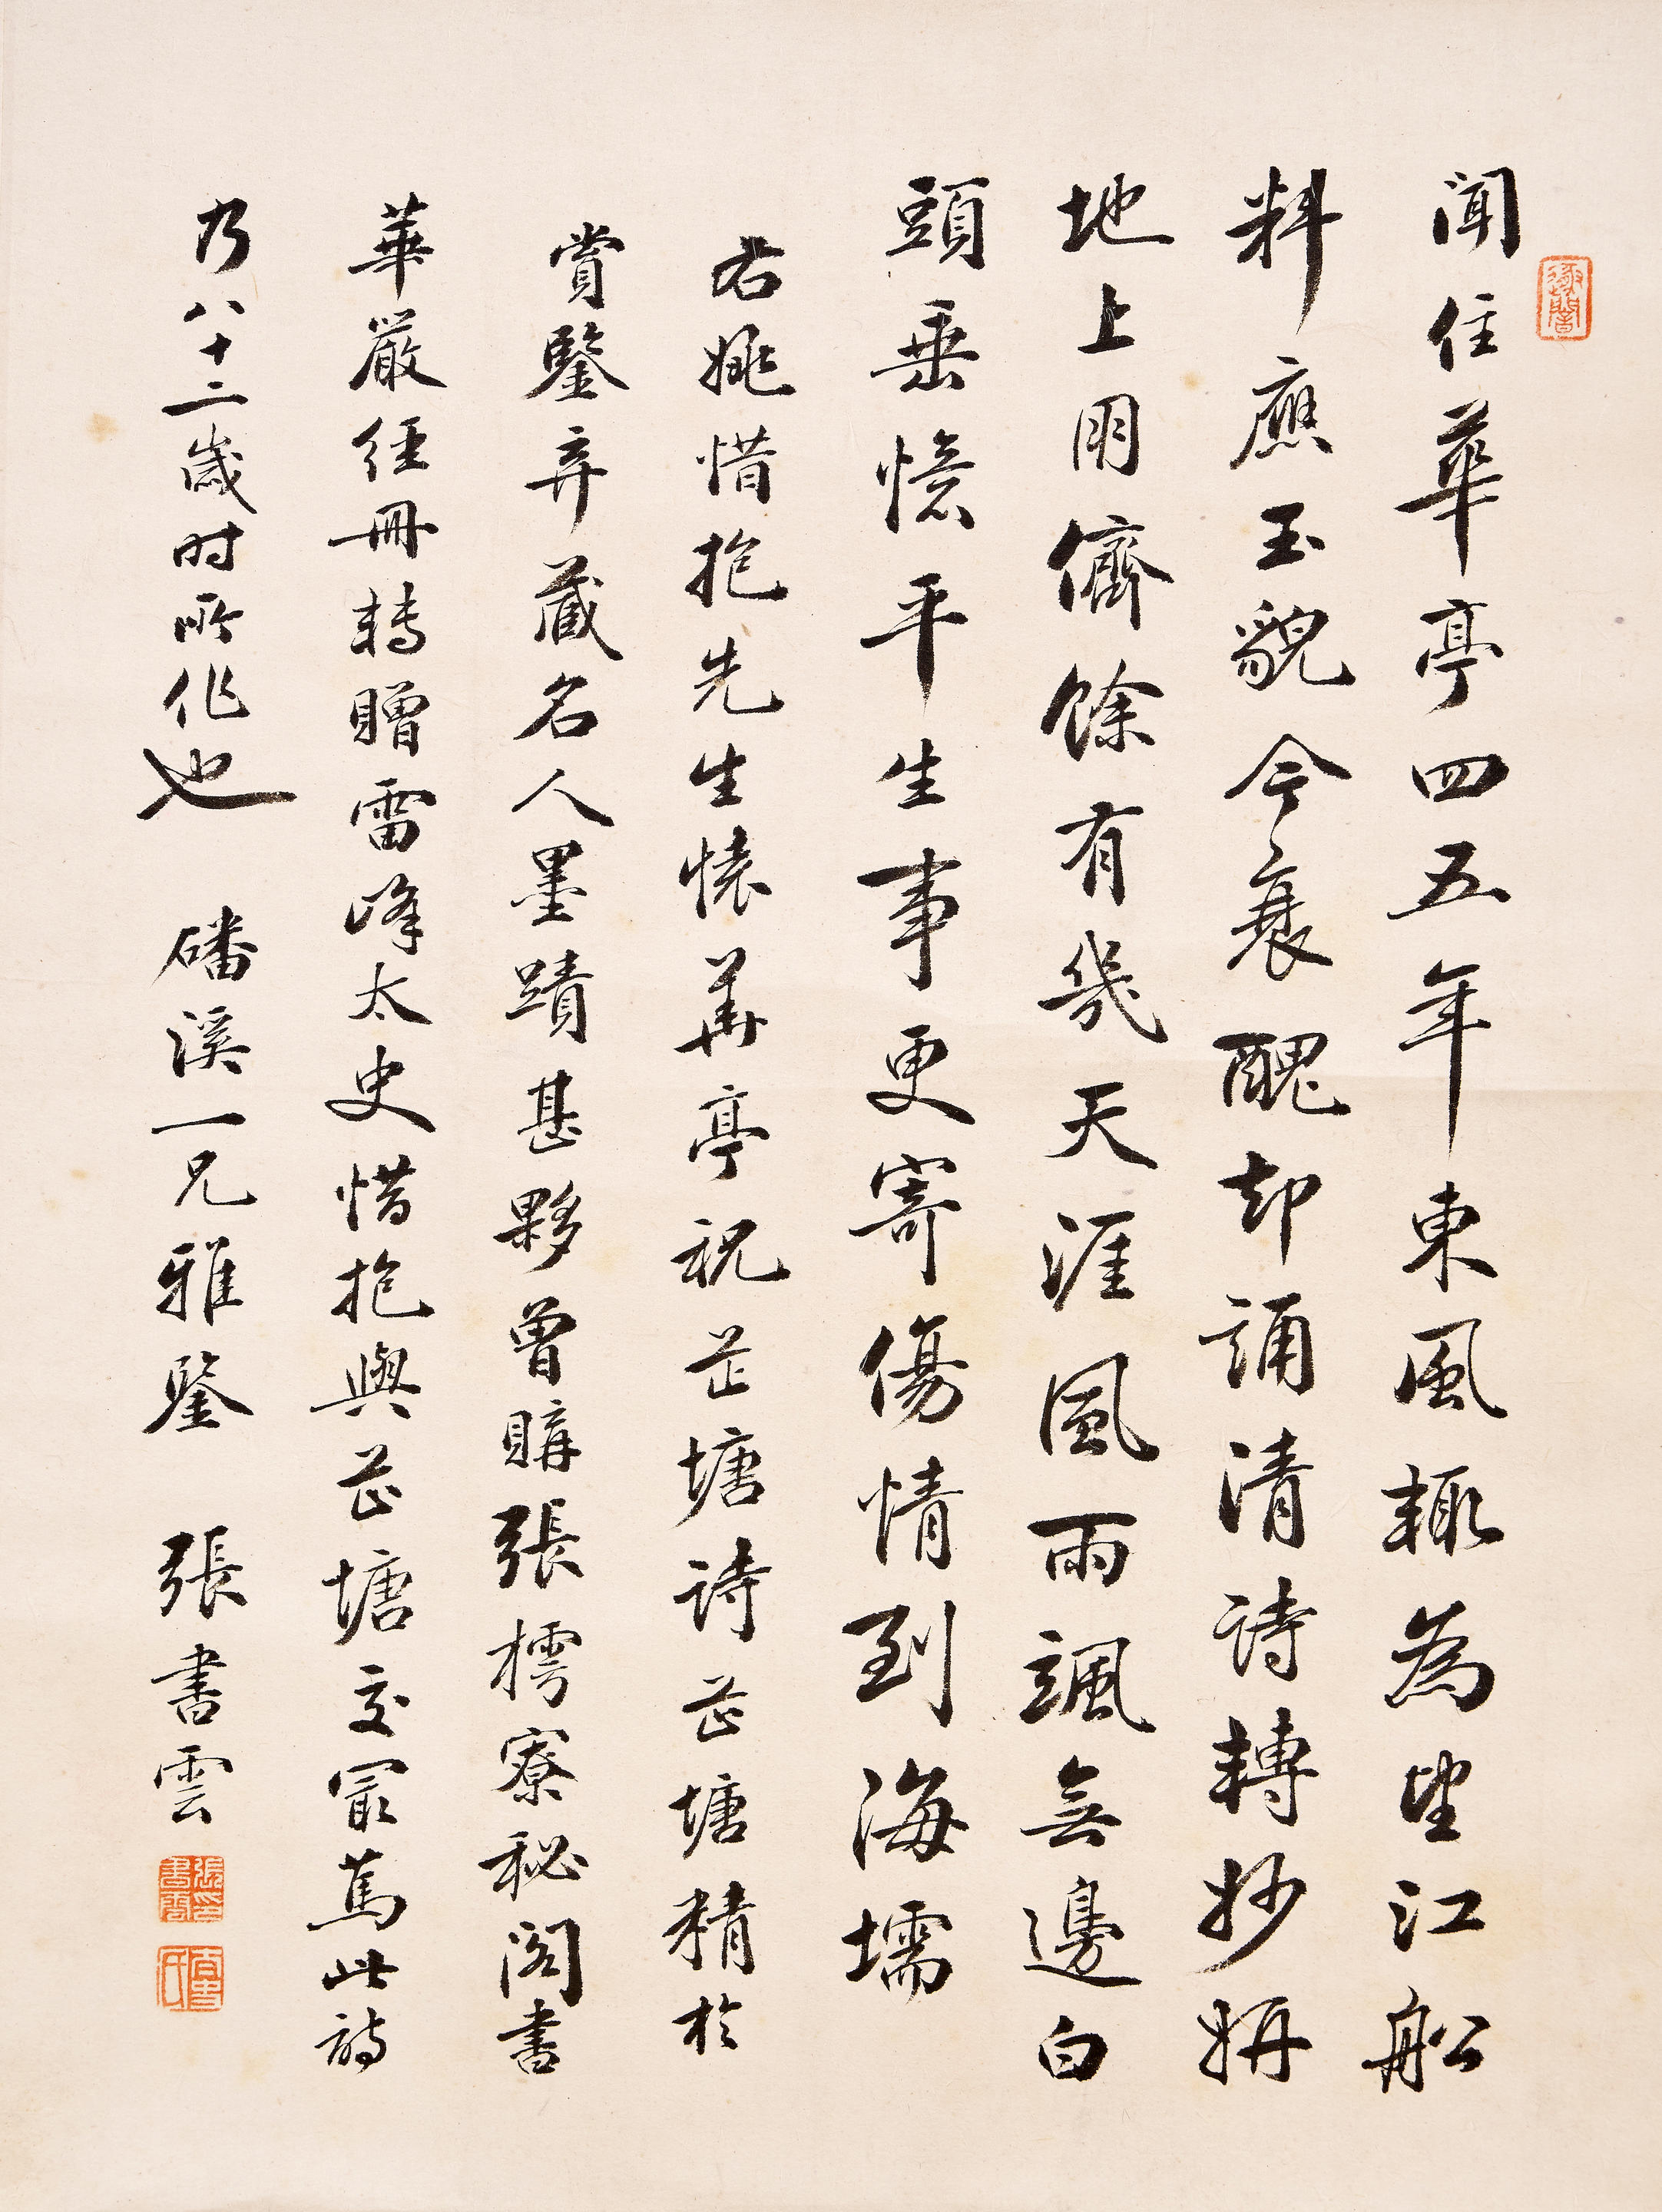 聞住華亭四五年東風輙為望江船
料應玉貌今衰醜却誦清詩轉抄妍
地上朋儕餘有幾天涯風雨颯無邊白
頭垂憶平生事更寄傷情到海壖
右姚惜抱先生懷華亭祝芷塘詩芷塘精於
賞鑒弆藏名人墨蹟甚夥曾購張樗寮秘閣書
華嚴經冊轉贈雷峰太史惜抱與芷塘交冣篤此詩
乃八十二歲时所作也 磻溪一兄雅鑒 張書雲